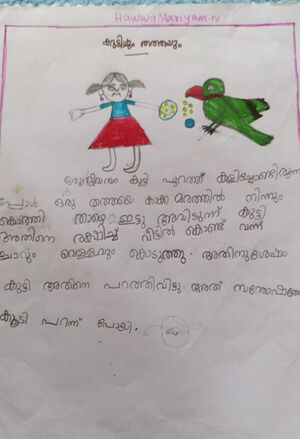 Hawwa Mariyam.N
കുട്ടിയും തത്തയും
ഒരു ദിവസം കുട്ടി പുറത്ത് കളിച്ചോണ്ടിരുന്ന
പ്പോൾ ഒരു തത്തയെ കാക്ക മരത്തിൽ നിന്നും
കൊത്തി താഴെ ഇട്ടു അവിടുന്ന് കുട്ടി
അതിനെ രക്ഷിച്ച് വീട്ടിൽ കൊണ്ട് വന്ന്
ചോറും വെള്ളവും കൊടുത്തു. അതിനുശേഷം
കുട്ടി അതിനെ പറത്തിവിട്ടു. അത് സന്തോഷത്തോ
കൂടി പറന്ന് പോയി.